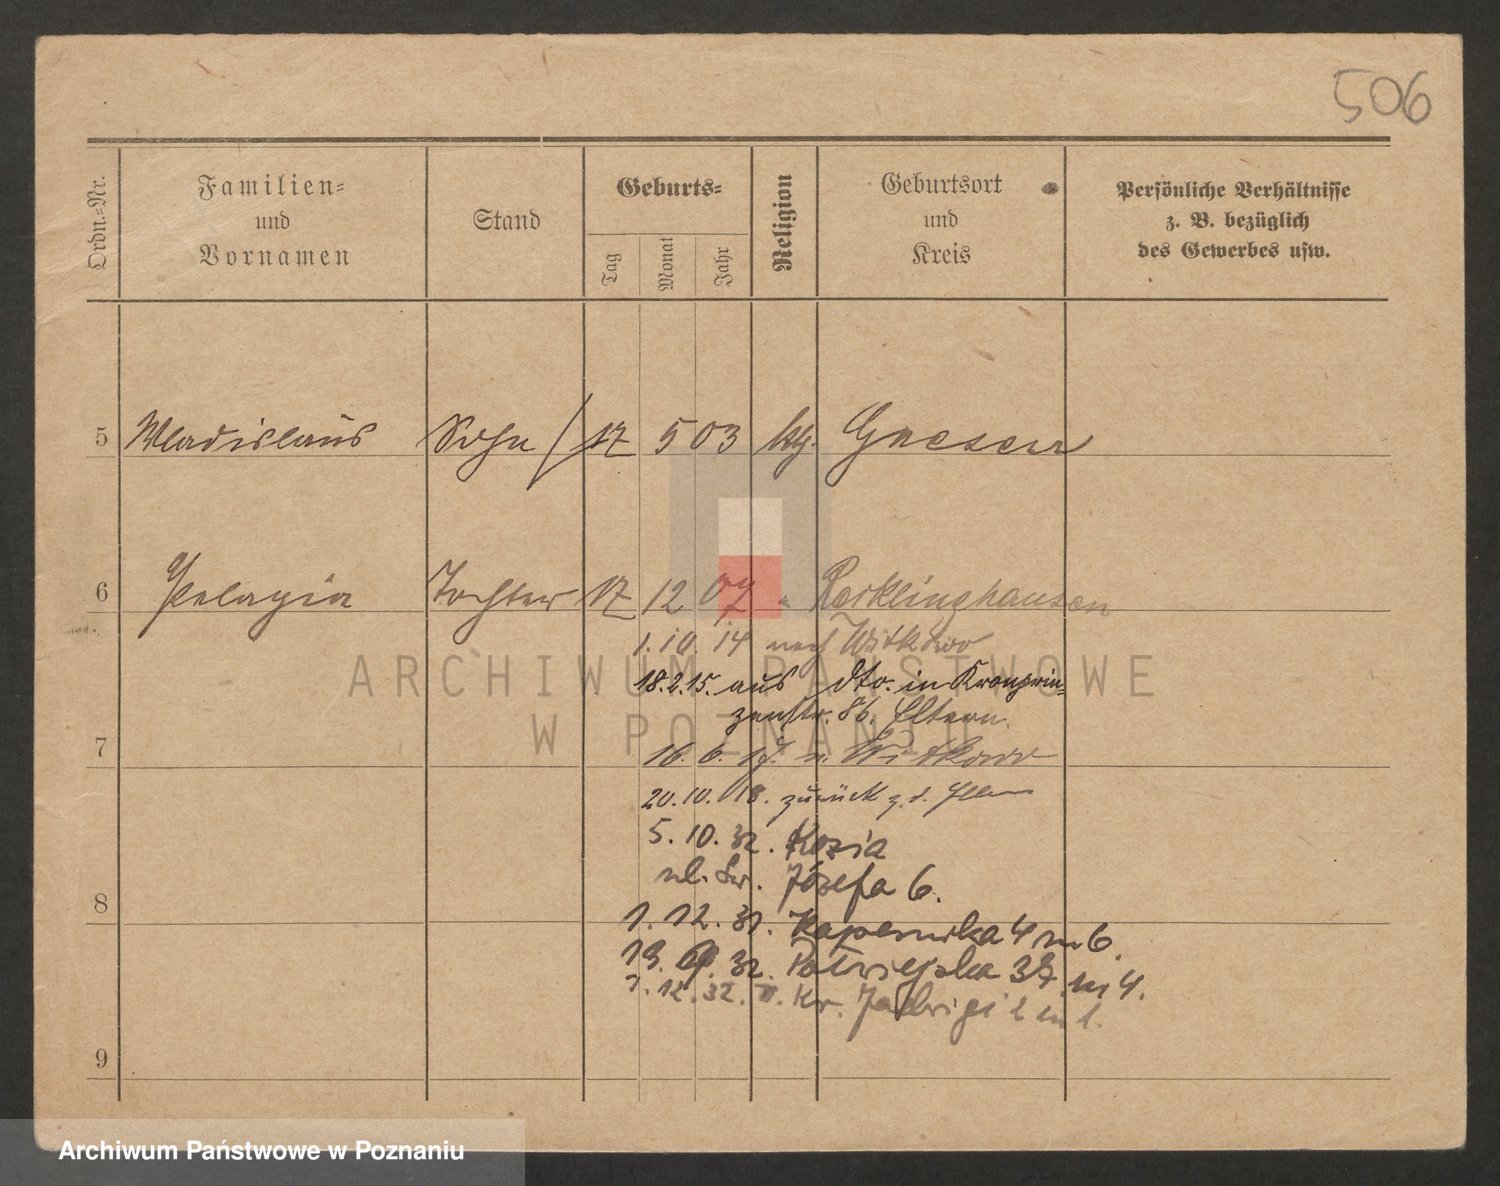 506
Ordn.=Nr.
Familien=
und
Vornamen
Stand
Geburts=
Tag
Monat
Jahr
Religion
Geburtsort
und
Kreis
Persönliche Verhältnisse
z. B. bezüglich
des Gewerbes usw.
5 Wladislaus Sohn 17 5 03 ktg. Gnesen
6 Pelagia Tochter 17 12 07 " Recklinghausen
1. 10. 14 nach Witkowo
18. 2. 15. aus dto. in Kronprin=
zenstr. 86. Eltern.
7
16. 6. 17. n. Witkowo
20. 10. 18. zurück z. d. Eltern
5. 10. 32. Kozia
ul. Św. Józefa 6.
8
1. 12. 31. Kopernika 4 m 6.
19. 9. 32. Patr 37 m 4.
1. 12. 32. Kr. Jadwigi 2 m 1.
9
ARCHIWUM PAŃSTWOWE
W POZNANIU
Archiwum Państwowe w Poznaniu